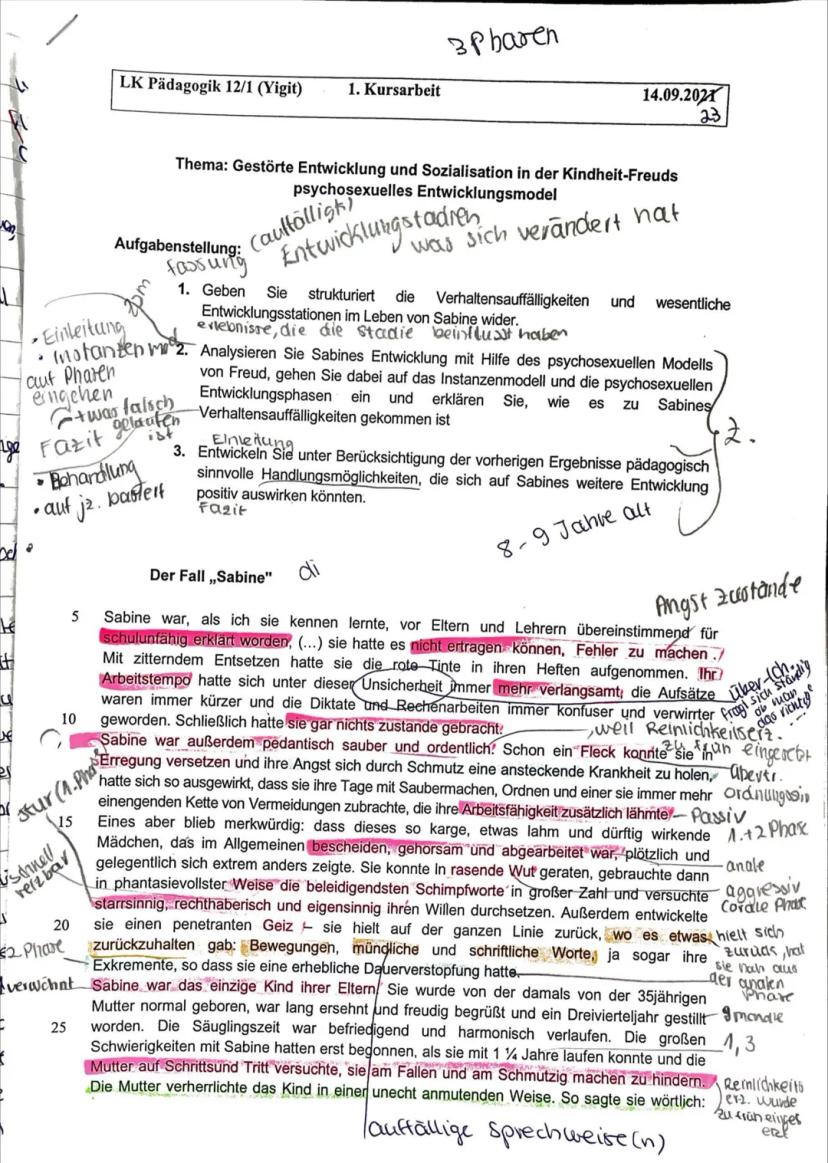 3 Phasen
LK Pädagogik 12/1 (Yigit) 1. Kursarbeit 14.09.2021
23
Thema: Gestörte Entwicklung und Sozialisation in der Kindheit-Freuds
psychosexuelles Entwicklungsmodel
(auffällig)
Entwicklungstadien
was sich verändert hat
Aufgabenstellung:
fassung
1. Geben Sie strukturiert die Verhaltensauffälligkeiten und wesentliche
Entwicklungsstationen im Leben von Sabine wider.
erlebnisse, die die stadie beinflusst haben
• Einleitung
• Instanzenmod
auf Phasen
eingehen
→ was falsch
gelaufen
ist
Fazit
2. Analysieren Sie Sabines Entwicklung mit Hilfe des psychosexuellen Modells
von Freud, gehen Sie dabei auf das Instanzenmodell und die psychosexuellen
Entwicklungsphasen ein und erklären Sie, wie es zu Sabines
Verhaltensauffälligkeiten gekommen ist
2.
Einleitung
3. Entwickeln Sie unter Berücksichtigung der vorherigen Ergebnisse pädagogisch
sinnvolle Handlungsmöglichkeiten, die sich auf Sabines weitere Entwicklung
positiv auswirken könnten.
Fazit
• Behandlung
• auf jz. basiert
8-9 Jahre alt
Der Fall „Sabine"
di
Angst zustände
5 Sabine war, als ich sie kennen lernte, vor Eltern und Lehrern übereinstimmend für
schulunfähig erklärt worden, (...) sie hatte es nicht ertragen können, Fehler zu machen.
Mit zitterndem Entsetzen hatte sie die rote Tinte in ihren Heften aufgenommen. Ihr
Arbeitstempo hatte sich unter dieser Unsicherheit immer mehr verlangsamt, die Aufsätze
waren immer kürzer und die Diktate und Rechenarbeiten immer konfuser und verwirrter
10 geworden. Schließlich hatte sie gar nichts zustande gebracht.
Über-Ich.
fragt sich ständig
ob man
das richtig
weil Reinlichkeitserz.
zu früh eingesetzt
Sabine war außerdem pedantisch sauber und ordentlich. Schon ein Fleck konnte sie in
Erregung versetzen und ihre Angst sich durch Schmutz eine ansteckende Krankheit zu holen,
hatte sich so ausgewirkt, dass sie ihre Tage mit Saubermachen, Ordnen und einer sie immer mehr
einengenden Kette von Vermeidungen zubrachte, die ihre Arbeitsfähigkeit zusätzlich lähmte.
übertr.
ordnungssin
Passiv
15 Eines aber blieb merkwürdig: dass dieses so karge, etwas lahm und dürftig wirkende
Mädchen, das im Allgemeinen bescheiden, gehorsam und abgearbeitet war, plötzlich und
gelegentlich sich extrem anders zeigte. Sie konnte In rasende Wut geraten, gebrauchte dann
in phantasievollster Weise die beleidigendsten Schimpfworte in großer Zahl und versuchte
starrsinnig, rechthaberisch und eigensinnig ihren Willen durchsetzen. Außerdem entwickelte
20 sie einen penetranten Geiz - sie hielt auf der ganzen Linie zurück, wo es etwas
zurückzuhalten gab: Bewegungen, mündliche und schriftliche Worte, ja sogar ihre
Exkremente, so dass sie eine erhebliche Dauerverstopfung hatte.
stur (1. Phase
schnell
reizbar
1. + 2 Phase
anale
aggressiv
(orale Phase
hielt sich
zurück, hat
sie nah aus
der analen
Phase
2 Phase
verwöhnt
Sabine war das einzige Kind ihrer Eltern. Sie wurde von der damals von der 35jährigen
Mutter normal geboren, war lang ersehnt und freudig begrüßt und ein Dreivierteljahr gestillt
25 worden. Die Säuglingszeit war befriedigend und harmonisch verlaufen. Die großen
Schwierigkeiten mit Sabine hatten erst begonnen, als sie mit 1 ¼ Jahre laufen konnte und die
Mutter auf Schrittsund Tritt versuchte, sie am Fallen und am Schmutzig machen zu hindern.
Die Mutter verherrlichte das Kind in einer unecht anmutenden Weise. So sagte sie wörtlich:
9 monate
1, 3
Reinlichkeits
erz. wurde
zu früh einges
etzt
auffällige Sprechweise(n)